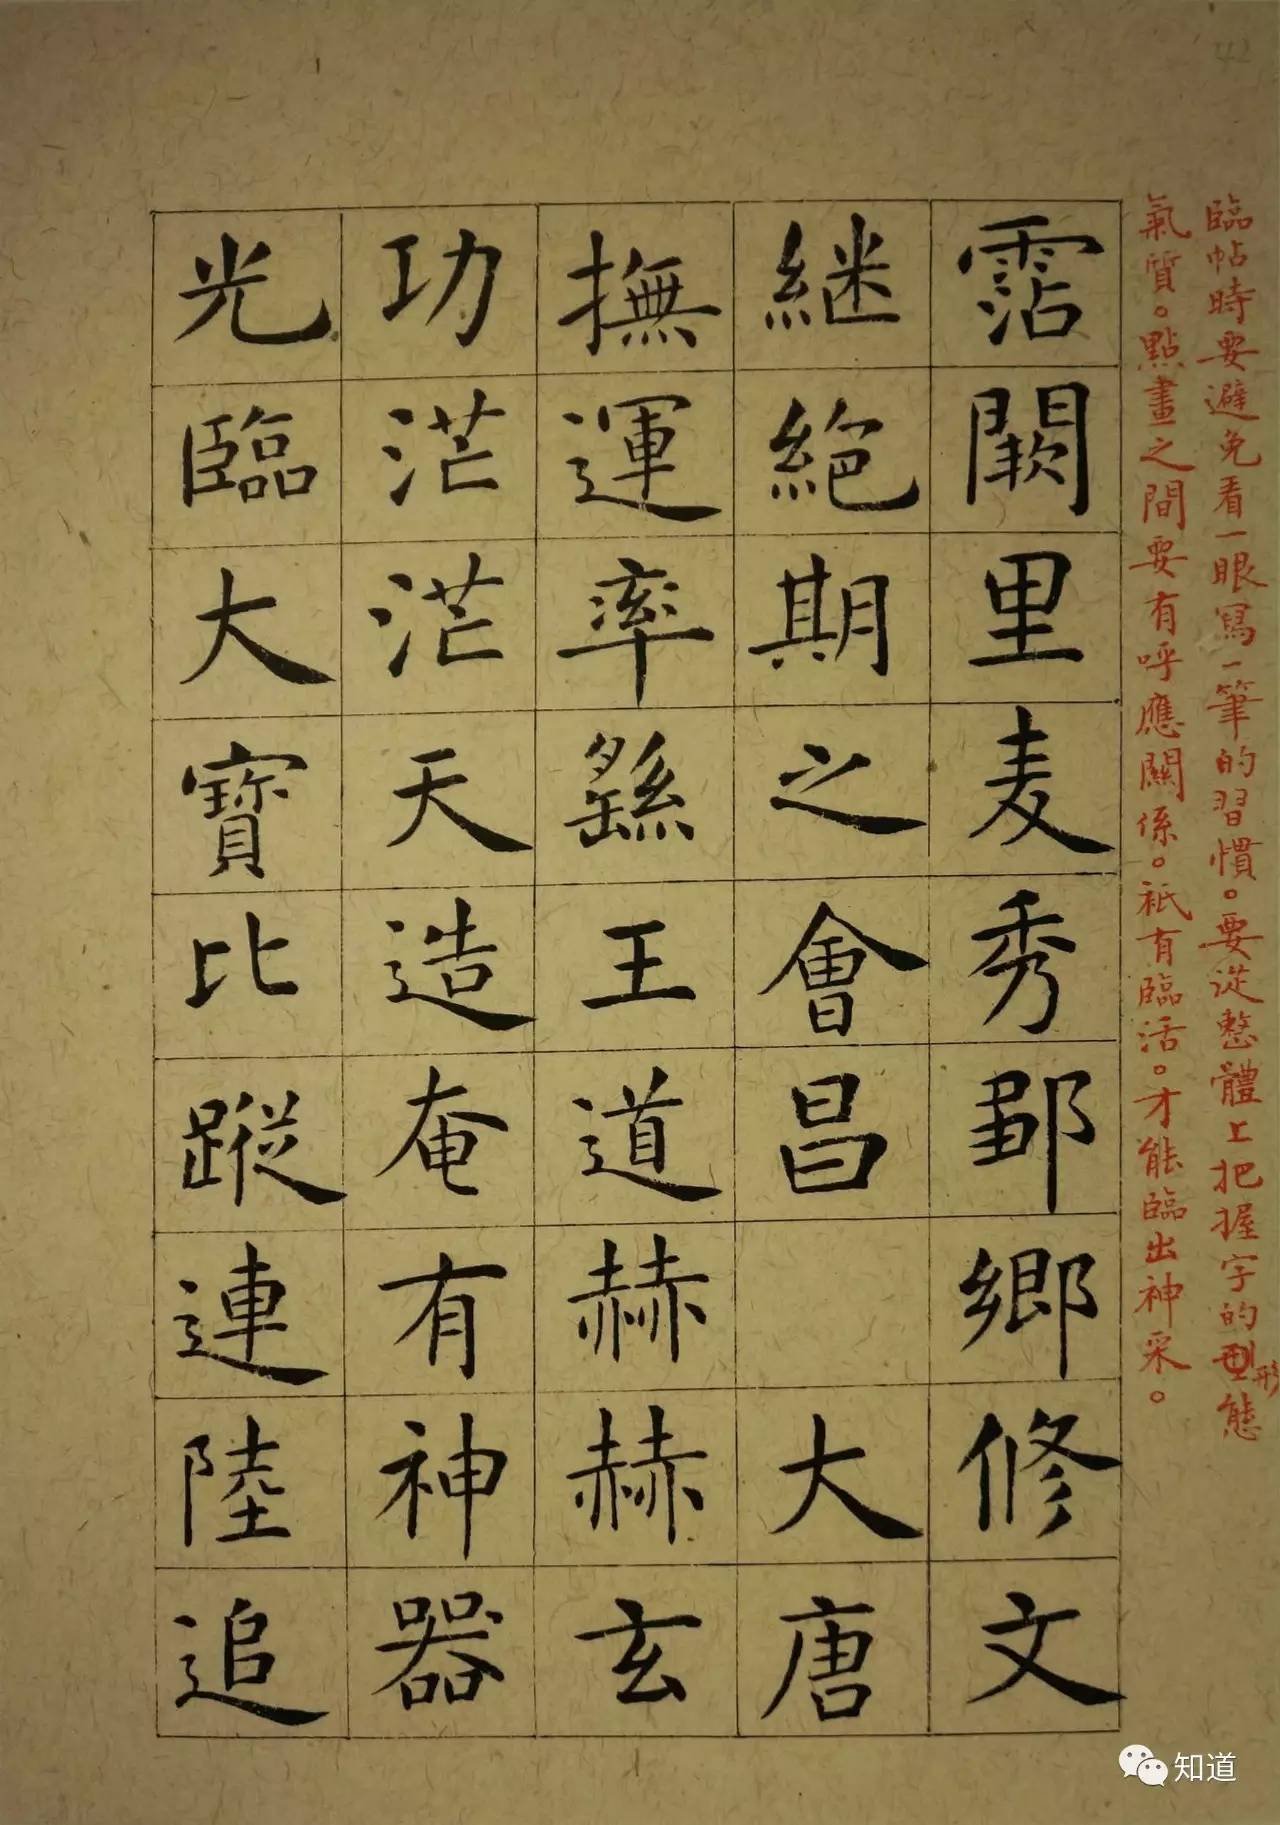 臨帖時要避免看一眼寫一筆的習慣。要從整體上把握字的形態
氣質。點畫之間要有呼應關係。衹有臨活。才能臨出神采。
霑闕里麦秀鄆鄉修文
継絶期之會昌 大唐
撫運率繇王道赫赫玄
功茫茫天造奄有神器
光臨大寶比蹤連陸追
42
知道